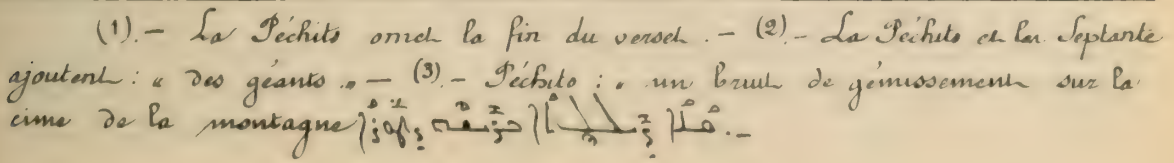 (1).- La Péchito omet la fin du verset. - (2).- La Péchito et les Septante
ajoutent : « des géants ». - (3) - Péchito : « un bruit de gémissement sur la
cime de la montagne ܩܠܐ ܕܝܠܠܐ ܒܪܫܗ ܕܛܘܪܐ. -